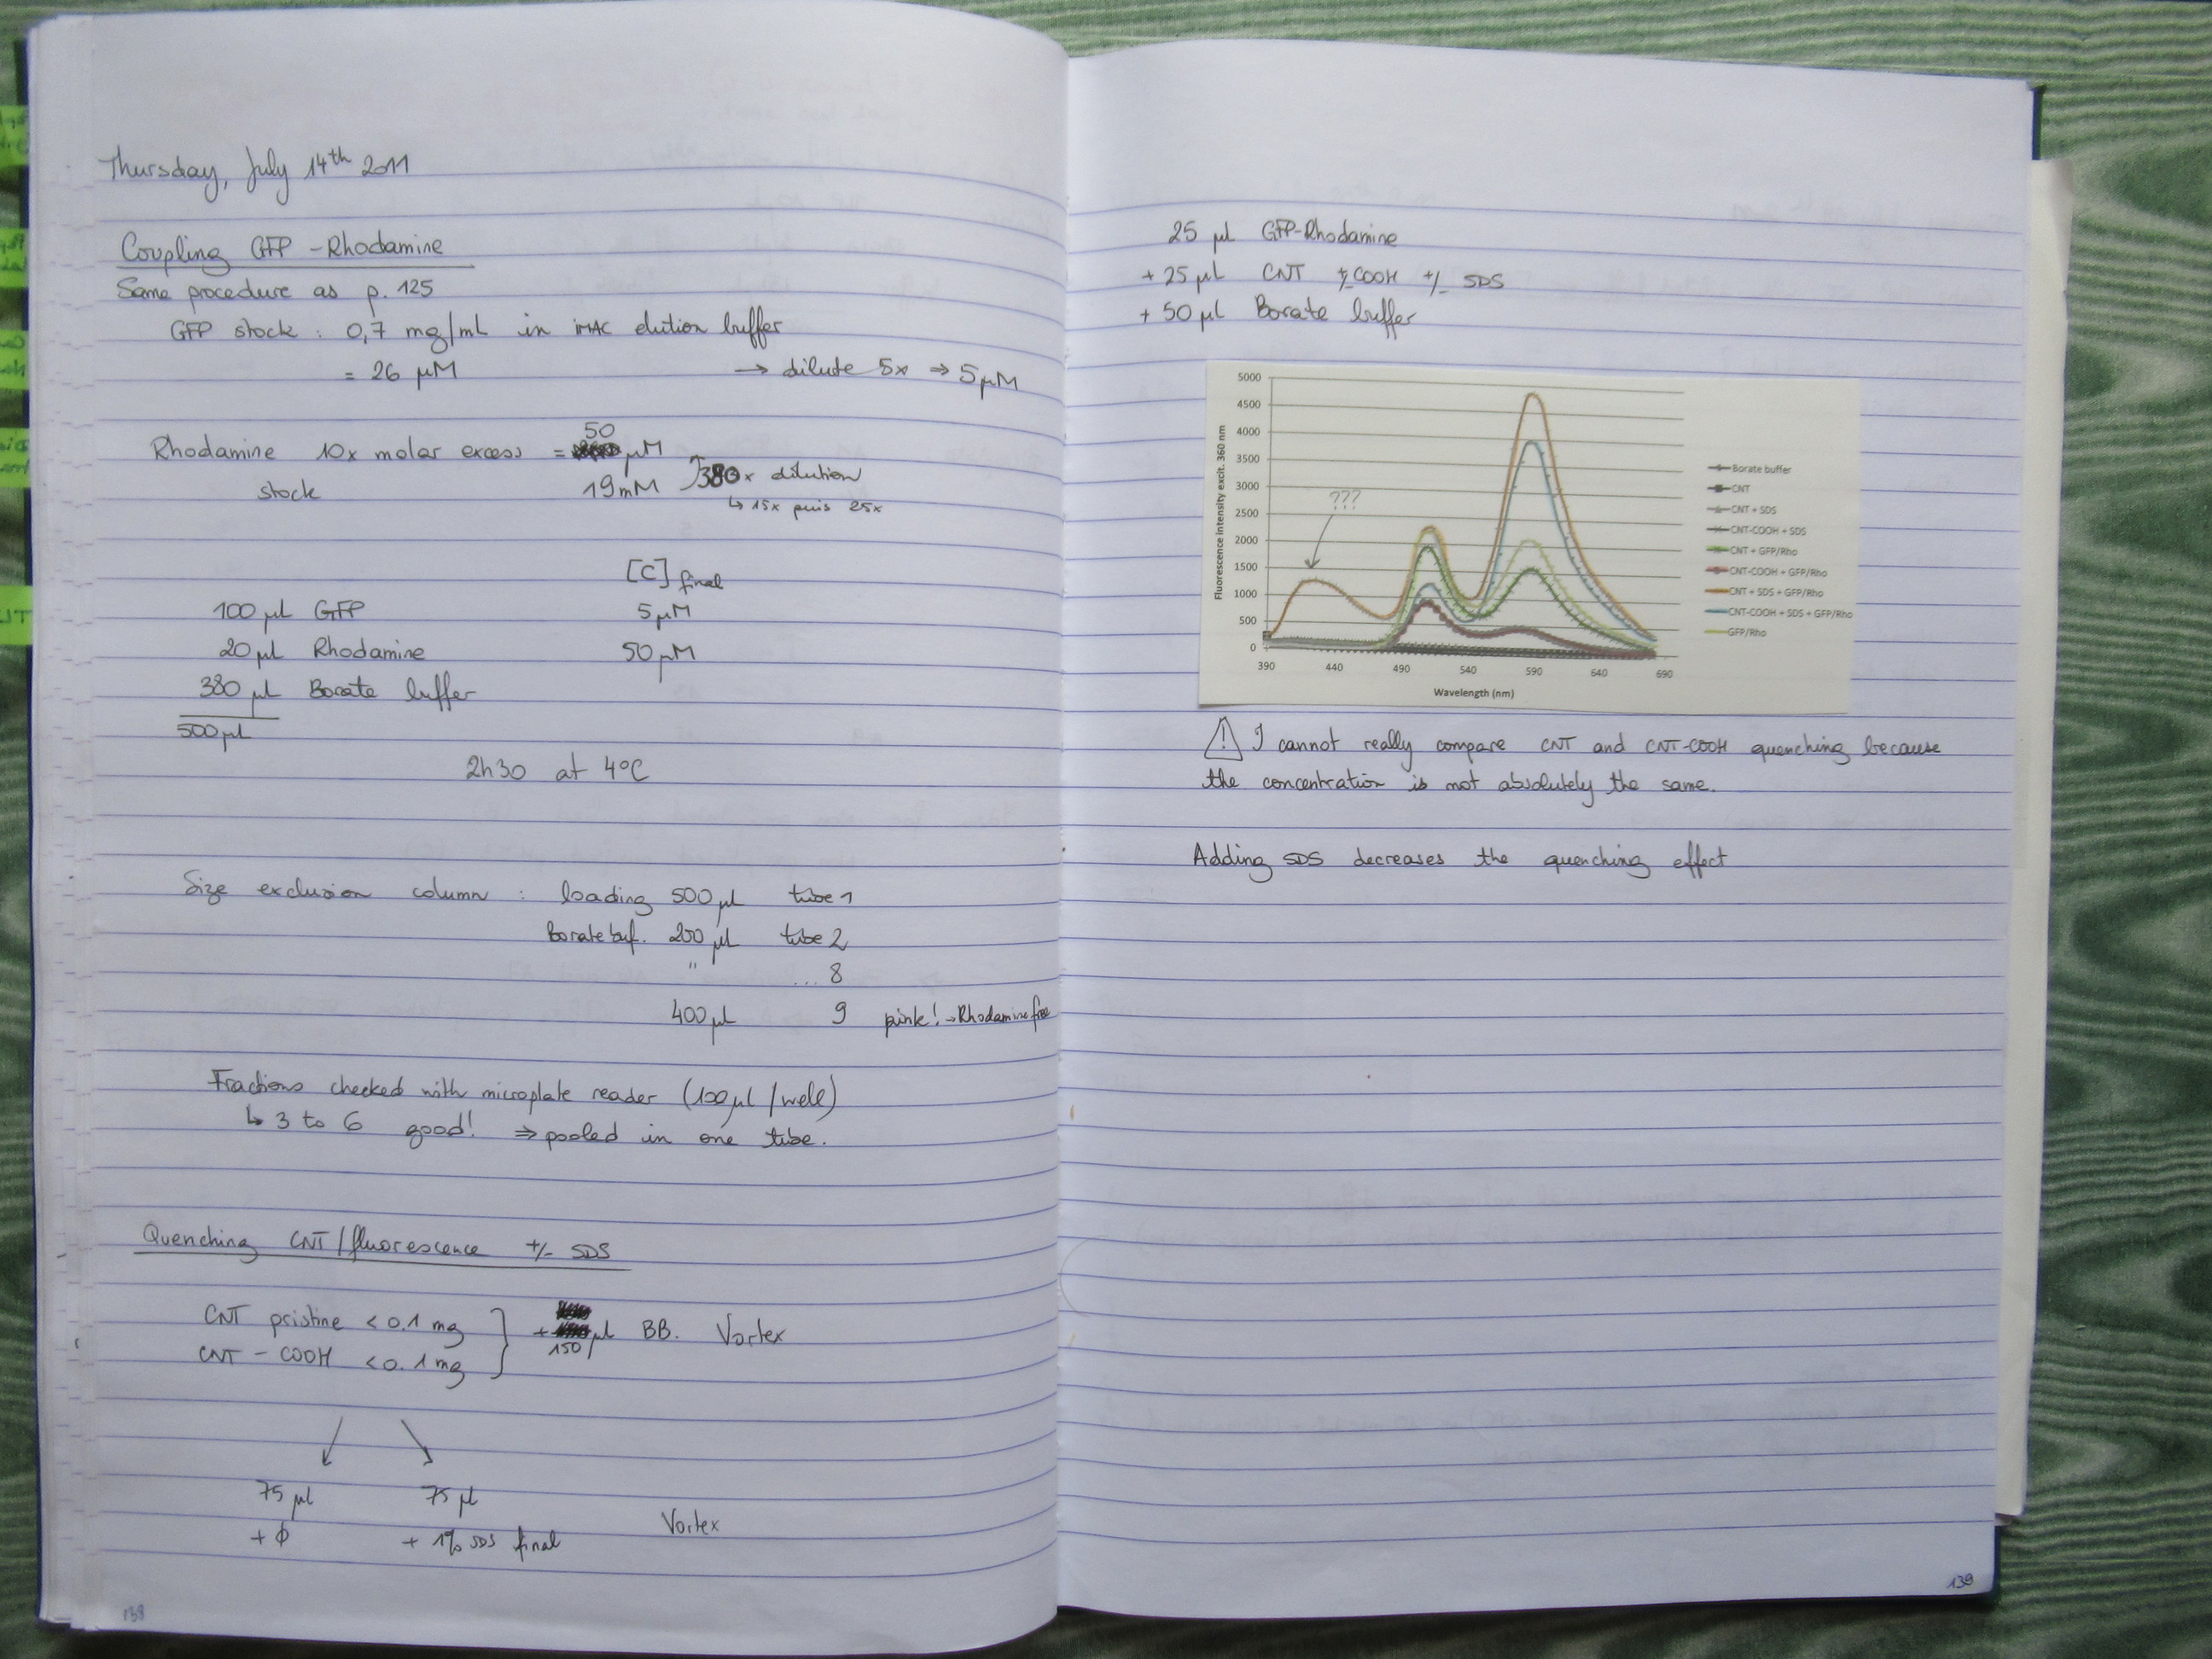 Thursday, July 14th 2011
Coupling GFP - Rhodamine
Same procedure as p. 125
GFP stock : 0,7 mg/mL in iMAC elution buffer
= 26 µM → dilute 5x ⇒ 5µM
50
Rhodamine 10x molar excess = µM
stock 19mM 380x dilution
↳ 15x puis 25x
[C] final
100 µL GFP 5µM
20 µL Rhodamine 50 µM
380 µL Borate buffer
500 µL
2h30 at 4°C
Size exclusion column : loading 500 µL tube 1
Borate buf. 200 µL tube 2
" ... 8
400 µL 9 pink! → Rhodamine free
Fractions checked with microplate reader (100µL / well)
↳ 3 to 6 good! ⇒ pooled in one tube.
Quenching CNT/fluorescence +/- SDS
CNT pristine < 0.1 mg
CNT - COOH < 0.1 mg
+ µL BB. Vortex
150
75 µL 75 µL
+ ϕ + 1% SDS final Vortex
138
25 µL GFP-Rhodamine
+ 25 µL CNT +/- COOH +/- SDS
+ 50 µL Borate buffer
Fluorescence intensity excit. 360 nm
5000
4500
4000
3500
3000
2500
2000
1500
1000
500
0
???
390 440 490 540 590 640 690
Wavelength (nm)
Borate buffer
CNT
CNT + SDS
CNT-COOH + SDS
CNT + GFP/Rho
CNT-COOH + GFP/Rho
CNT + SDS + GFP/Rho
CNT-COOH + SDS + GFP/Rho
GFP/Rho
! I cannot really compare CNT and CNT-COOH quenching because
the concentration is not absolutely the same.
Adding SDS decreases the quenching effect
139